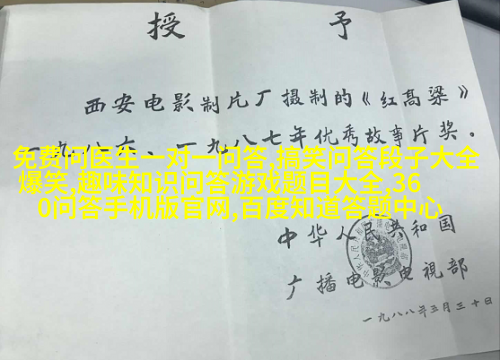 授 予
西安电影制片厂摄制的《红高粱》
一九八六、一九八七年优秀故事片奖。
免费问医生一对一问答,搞笑问答段子大全
爆笑,趣味知识问答游戏题目大全,36
0问答手机版官网,百度知道答题中心
中华人民共和国
广播电影电视部
一九八八年三月三十日